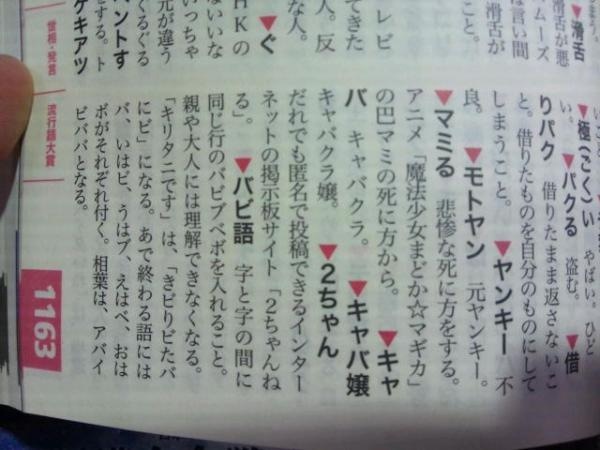 ▼滑舌
滑舌が悪
ムーズ
は言い間
こと。
レビ
てきた
人。反
な人。
▼ぐ
HKの
ないいな
いっちゃ
元が違う
ぐるぐる
ントす
をする。ト
ケキアツ
▼極(ごく)い やばい。ひど
い。 ▼パクる 盗む。 ▼借
りパク 借りたまま返さないこ
と。借りたものを自分のものにして
しまうこと。 ▼ヤンキー 不
良。 ▼モトヤン 元ヤンキー。
▼マミる 悲惨な死に方をする。
アニメ「魔法少女まどか☆マギカ」
の巴マミの死に方から。 ▼キャ
バ キャバクラ。 ▼キャバ嬢
キャバクラ嬢。 ▼2ちゃん
だれでも匿名で投稿できるインター
ネットの掲示板サイト「2ちゃんね
る」。 ▼バビ語 字と字の間に
同じ行のバビブベボを入れること。
親や大人には理解できなくなる。
「キリタニです」は、「きビりビたバ
にビ」になる。あで終わる語には
バ、いはビ、うはブ、えはベ、おは
ボがそれぞれ付く。相葉は、アバイ
ビババとなる。
世相・発言
流行語大賞
1163